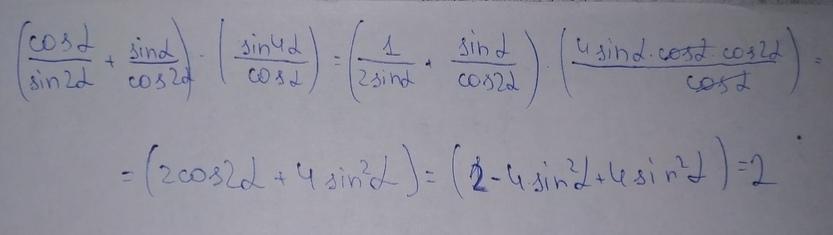 (cosα/sin2α + sinα/cos2α) · (sin4α/cosα) = (1/2sinα · sinα/cos2α) · (4sinα·cosα·cos2α/cosα) =
= (2cos2α + 4sin²α) = (2 - 4sin²α + 4sin²α) = 2